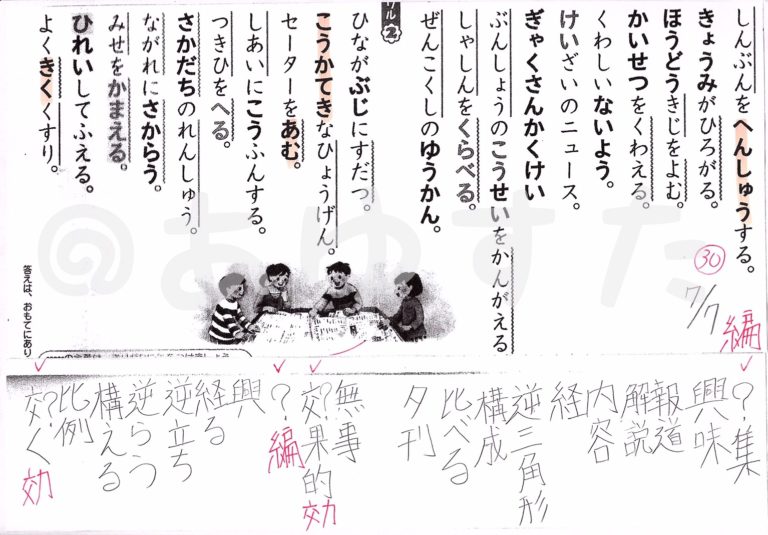 しんぶんをへんしゅうする。
きょうみがひろがる。
ほうどうきじをよむ。
かいせつをくわえる。
くわしいないよう。
けいざいのニュース。
ぎゃくさんかくけい
ぶんしょうのこうせいをかんがえる
しゃしんをくらべる。
ぜんこくしのゆうかん。
ドリル2
ひながぶじにすだつ。
こうかてきなひょうげん。
セーターをあむ。
しあいにこうふんする。
つきひをへる。
さかだちのれんしゅう。
ながれにさからう。
みせをかまえる。
ひれいしてふえる。
よくきくくすり。
答えは、おもてにあり
30
7/7
@おゆすた
?集
編
興味
報道
解説
内容
経
逆三角形
構成
比べる
夕刊
無事
交?果的
効
?
編
興
経る
逆立ち
逆らう
構える
比例
交?く
効